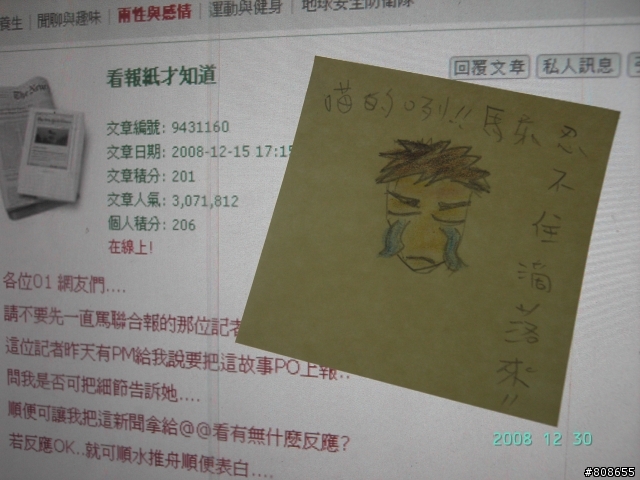 養生 | 閒聊與趣味 | 兩性與感情 | 運動與健身 | 地球安全防衛隊
回覆文章 私人訊息
The New
看報紙才知道
文章編號: 9431160
文章日期: 2008-12-15 17:15
文章積分: 201
文章人氣: 3,071,812
個人積分: 206
在線上!
喵的咧!!
忍不住滴落來!!
各位01 網友們....
請不要先一直罵聯合報的那位記者
這位記者昨天有PM給我說要把這故事PO上報..
問我是否可把細節告訴她....
順便可讓我把這新聞拿給@@看有無什麼反應?
若反應OK..就可順水推舟順便表白....
2008 12 30
#808655